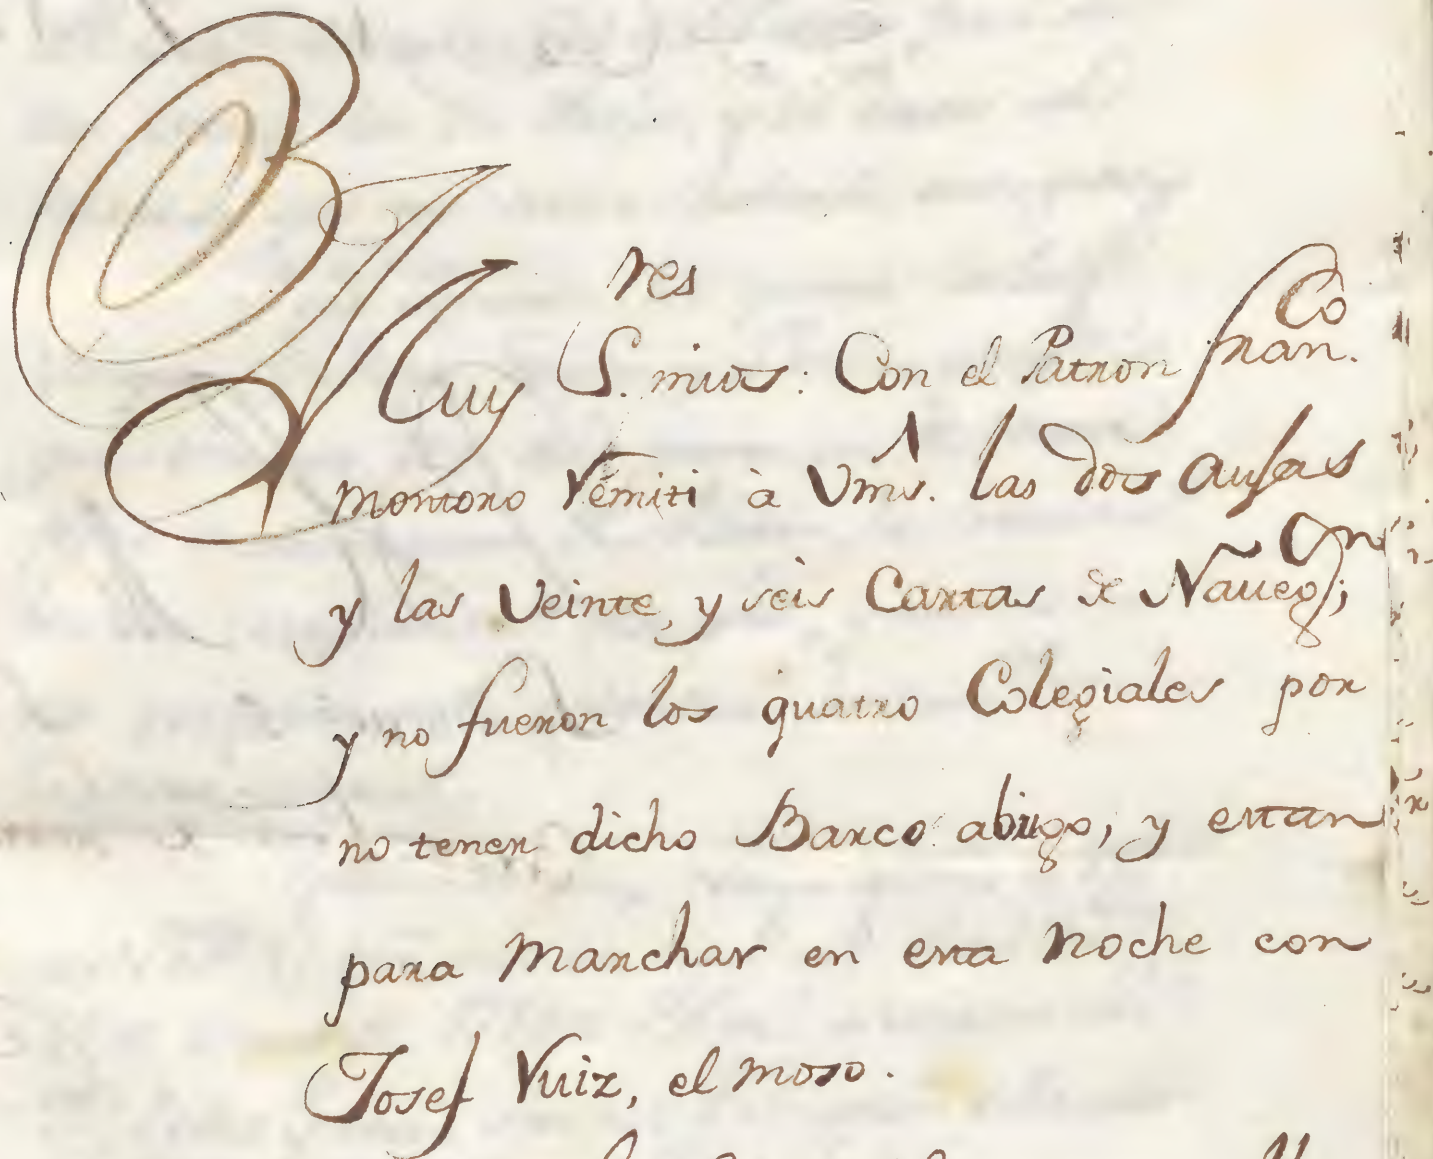 Muy S.res mios: Con el Patron Fran.co
montoro Remiti à Vms. las dos Aujas
y las Veinte, y seis Cartas de Naveg.on;
y no fueron los quatro Colegiales por
no tener dicho Barco abrigo, y estan
para marchar en esta noche con
Josef Ruiz, el moso.